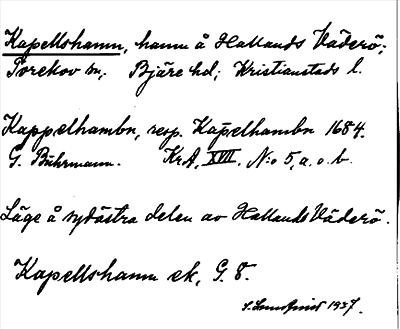 Kapellshamn, hamn å Hallands Väderö;
Torekov sn; Bjäre hd; Kristianstads l.
Kappelhambn, resp. Kapelhambn 1684.
G. Buhrmann. KrA, XVII, N:o 5, a. o. b.
Läge å sydöstra delen av Hallands Väderö.
Kapellshamn ek, G. 8.
S. Lundqvist 1937.